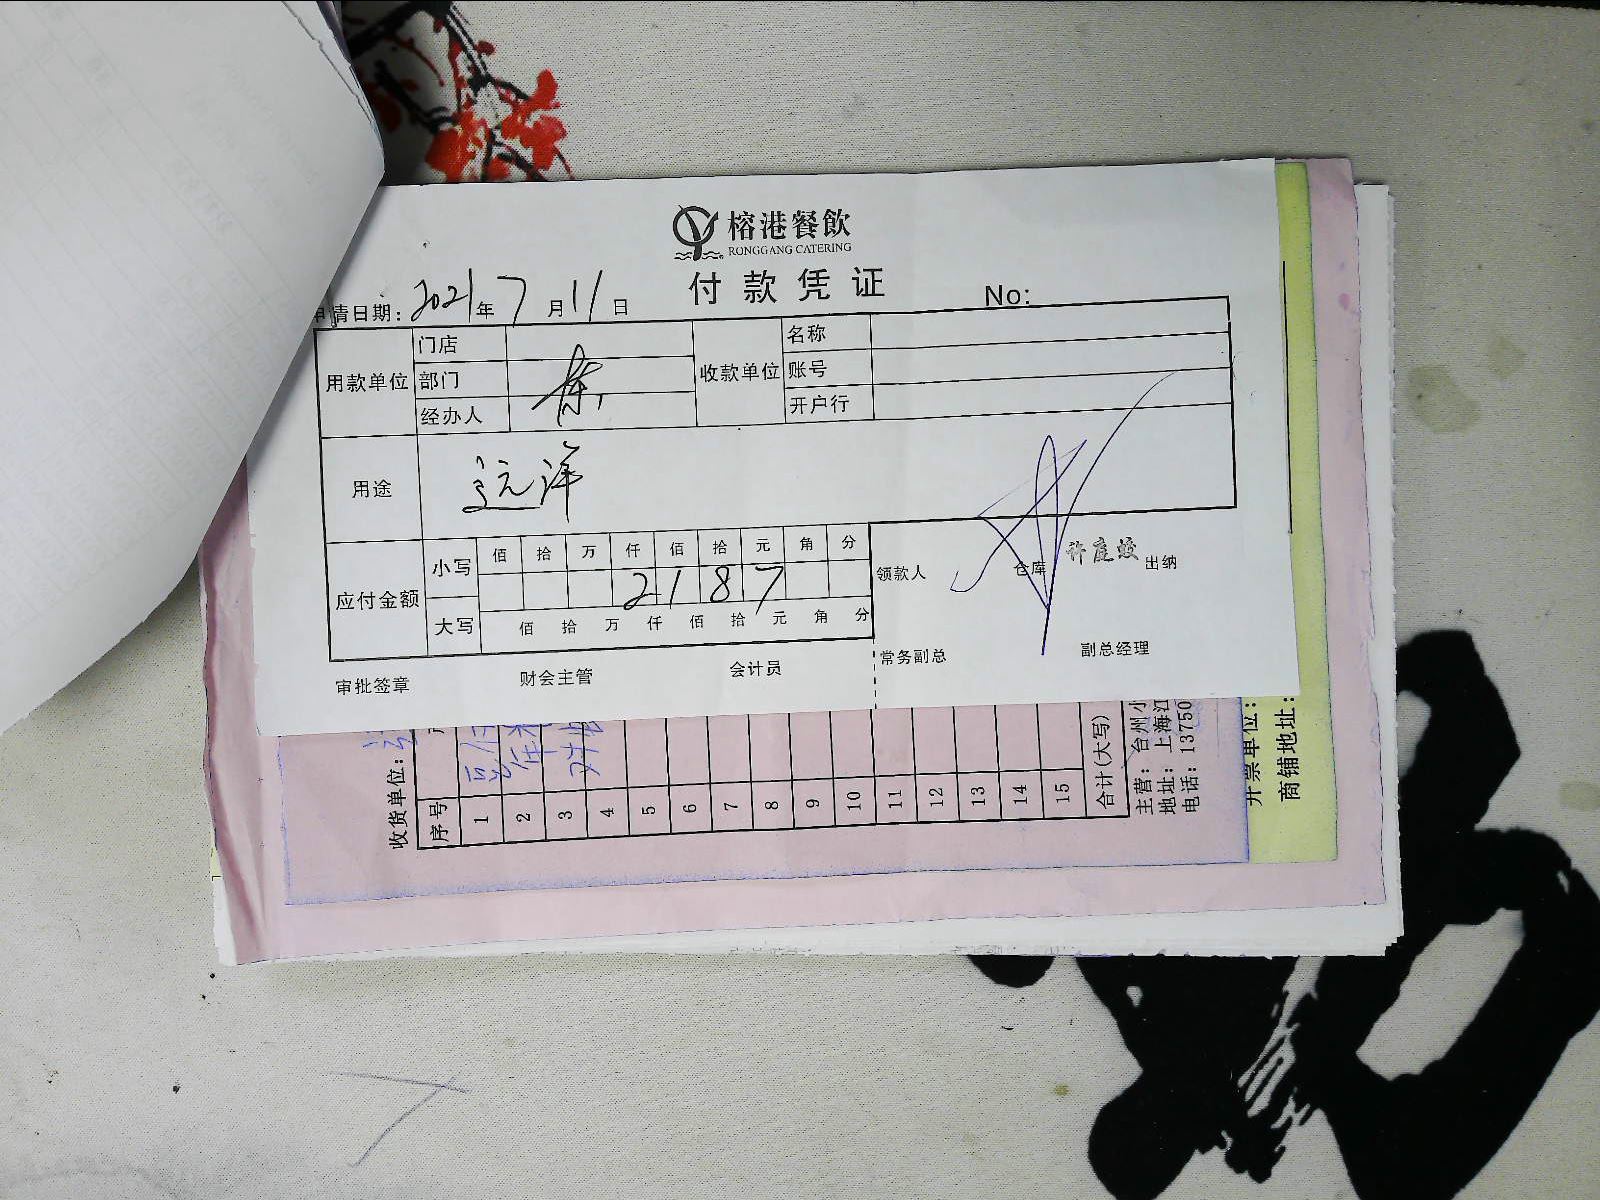 榕港餐飲
RONGGANG CATERING
付款凭证
No:
申请日期: 2021年7月11日
用款单位 门店 收款单位 名称
部门 账号
经办人 开户行
用途 远洋
应付金额 小写 佰 拾 万 仟 佰 拾 元 角 分
2 1 8 7
大写 佰 拾 万 仟 佰 拾 元 角 分
领款人 仓库 许庭蛟 出纳
审批签章 财会主管 会计员 常务副总 副总经理
收货单位:
序号 1 2 3 4 5 6 7 8 9 10 11 12 13 14 15
合计(大写)
主营: 台州小
地址: 上海江
电话: 13750
开票单位:
商铺地址: